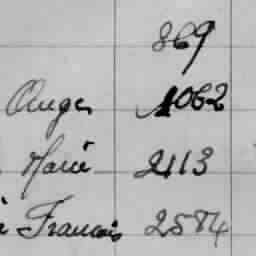 869
Anges 1062
Marie 2113
Francois 2584